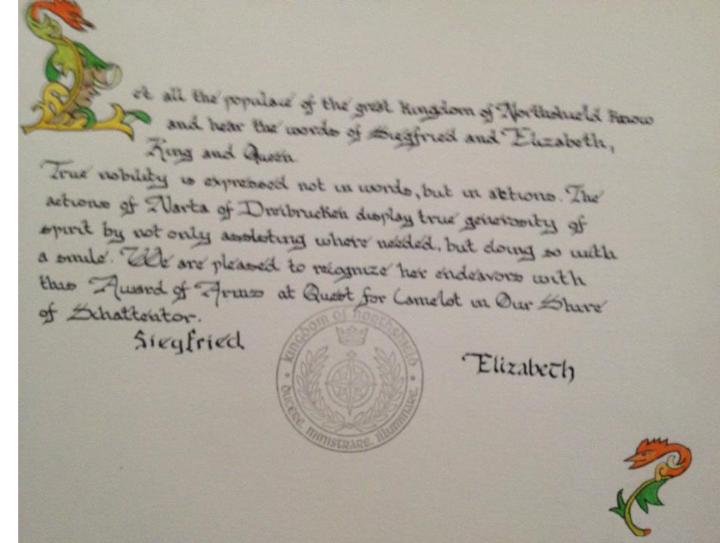 Let all the populace of the great kingdom of Northshield know
and hear the words of Siegfried and Elizabeth,
King and Queen
True nobility is expressed not in words, but in actions. The
actions of Marta of Dreibrucken display true generosity of
spirit by not only assisting where needed, but doing so with
a smile. We are pleased to recognize her endeavors with
this Award of Arms at Quest for Camelot in Our Shire
of Schattentor.
Siegfried
Elizabeth
Kingdom of Northshield
Ducere, Ministrare, Illuminare